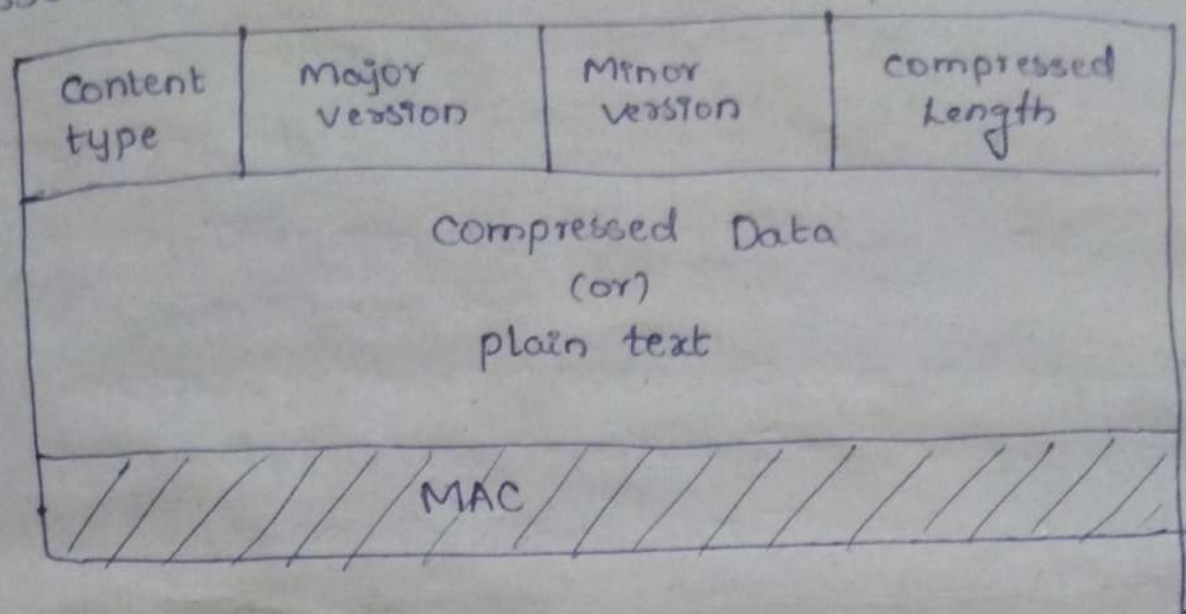 Content type
Major version
Minor version
compressed Length
Compressed Data
(or)
plain text
MAC